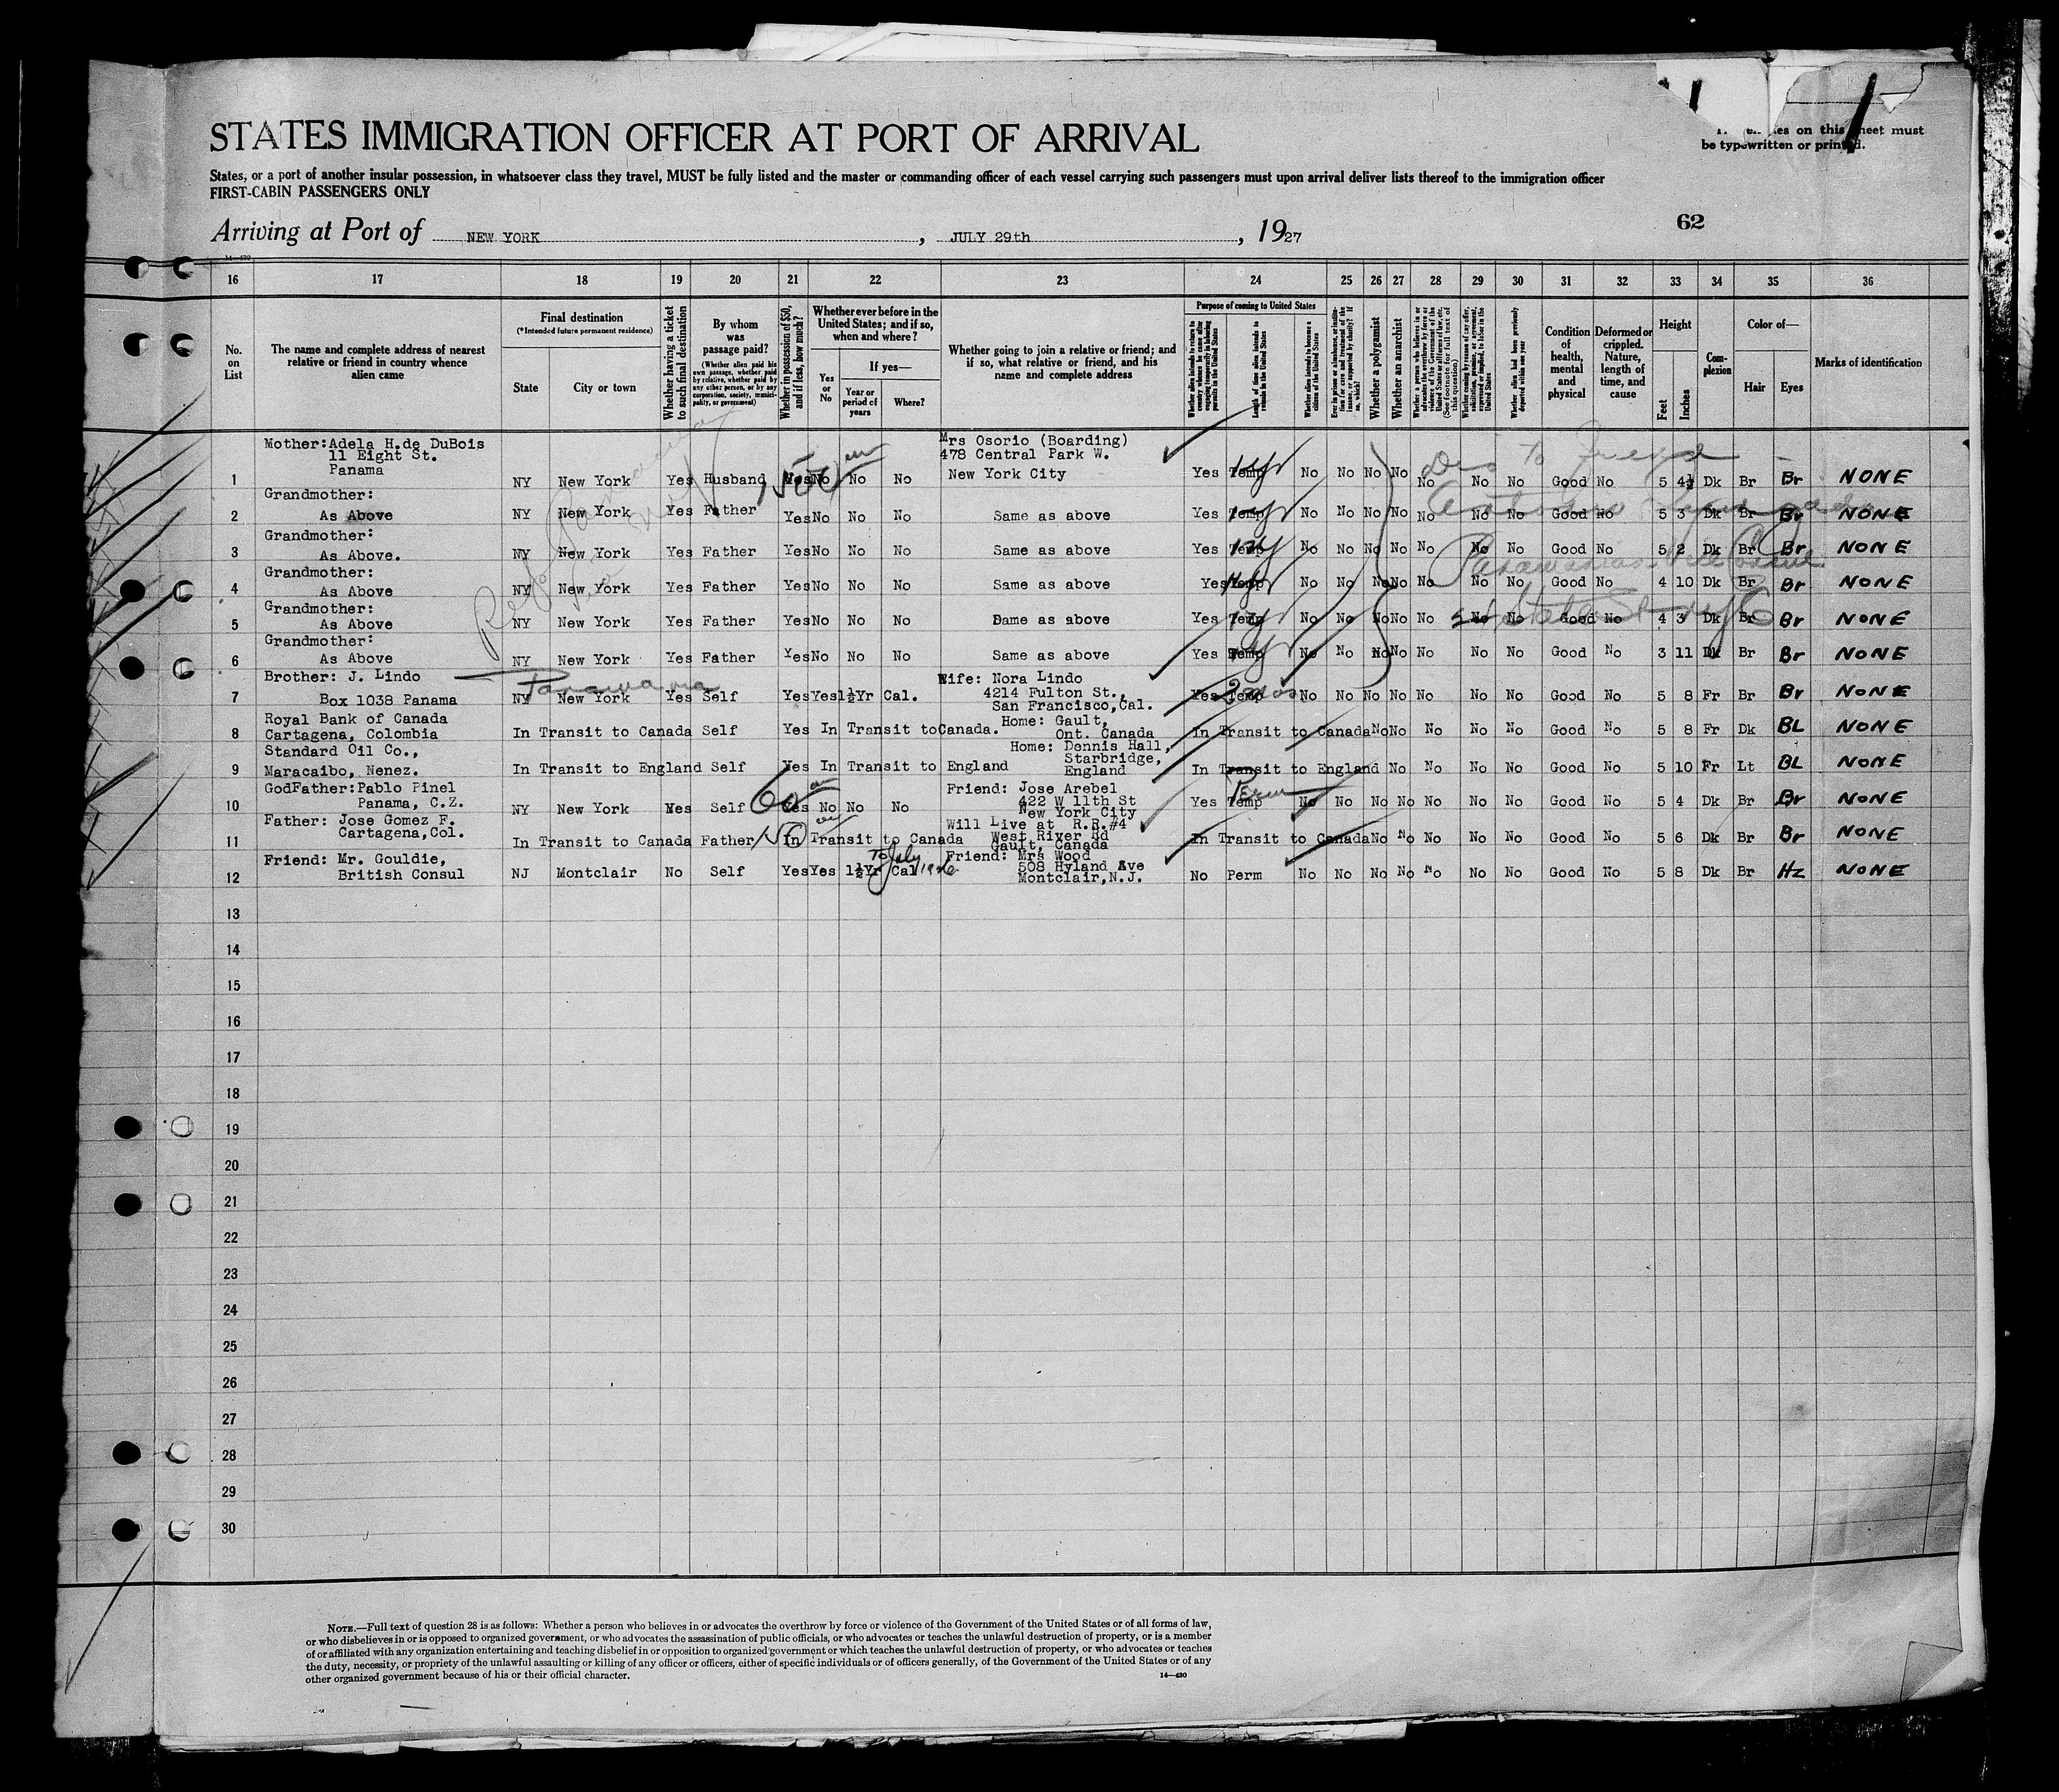 STATES IMMIGRATION OFFICER AT PORT OF ARRIVAL
on this sheet must
be typewritten or printed.
States, or a port of another insular possession, in whatsoever class they travel, MUST be fully listed and the master or commanding officer of each vessel carrying such passengers must upon arrival deliver lists thereof to the immigration officer
FIRST-CABIN PASSENGERS ONLY
62
Arriving at Port of NEW YORK, JULY 29th, 1927
16 17 18 19 20 21 22 23 24 25 26 27 28 29 30 31 32 33 34 35 36
No. on List
The name and complete address of nearest relative or friend in country whence alien came
Final destination
(*Intended future permanent residence)
State
City or town
Whether having a ticket to such final destination
By whom was passage paid?
(Whether alien paid his own passage, whether paid by relative, whether paid by any other person, or by any corporation, society, municipality, or government)
Whether in possession of $50, and if less, how much?
Whether ever before in the United States; and if so, when and where?
Yes or No
If yes—
Year or period of years
Where?
Whether going to join a relative or friend; and if so, what relative or friend, and his name and complete address
Purpose of coming to United States
Length of time alien intends to remain in the United States
Whether alien intends to become a citizen of the United States
Whether a polygamist
Whether an anarchist
Condition of health, mental and physical
Deformed or crippled. Nature, length of time, and cause
Height
Feet
Inches
Complexion
Color of—
Hair
Eyes
Marks of identification
Mother: Adela H. de DuBois Mrs Osorio (Boarding)
11 Eight St. 478 Central Park W.
Panama New York City
1 NY New York Yes Husband Yes No No No Yes Temp No No No No No No No Good No 5 4½ Dk Br Br NONE
Grandmother:
2 As Above NY New York Yes Father Yes No No No Same as above Yes Temp No No No No No No No Good No 5 3 Dk Br Br NONE
Grandmother:
3 As Above. NY New York Yes Father Yes No No No Same as above Yes Temp No No No No No No No Good No 5 2 Dk Br Br NONE
Grandmother:
4 As Above NY New York Yes Father Yes No No No Same as above Yes Temp No No No No No No No Good No 4 10 Dk Br Br NONE
Grandmother:
5 As Above NY New York Yes Father Yes No No No Dame as above Yes Temp No No No No No No No Good No 4 3 Dk Br Br NONE
Grandmother:
6 As Above NY New York Yes Father Yes No No No Same as above Yes Temp No No No No No No No Good No 3 11 Dk Br Br NONE
Panama
Brother: J. Lindo Wife: Nora Lindo
4214 Fulton St.,
7 Box 1038 Panama NY New York Yes Self Yes Yes 1½Yr Cal. San Francisco, Cal. Yes Temp No No No No No No No Good No 5 8 Fr Br Br NONE
Royal Bank of Canada Home: Gault,
8 Cartagena, Colombia In Transit to Canada Self Yes In Transit to Canada. Ont. Canada In Transit to Canada No No No No No Good No 5 8 Fr Dk BL NONE
Standard Oil Co., Home: Dennis Hall,
Starbridge,
9 Maracaibo, Nenez. In Transit to England Self Yes In Transit to England England In Transit to England No No No No Good No 5 10 Fr Lt BL NONE
GodFather: Pablo Pinel Friend: Jose Arebel
Panama, C.Z. 422 W 11th St
10 NY New York Yes Self 60 Yes No No No New York City Yes Temp Perm No No No No No No No Good No 5 4 Dk Br Br NONE
Father: Jose Gomez F. Will Live at R.R.#4
Cartagena, Col. West River Rd
11 In Transit to Canada Father 150 In Transit to Canada Gault, Canada In Transit to Canada No No No No No Good No 5 6 Dk Br Br NONE
Friend: Mr. Gouldie, To July 1926 Friend: Mrs Wood
British Consul 508 Hyland Ave
12 NJ Montclair No Self Yes Yes 1½Yr Cal Montclair, N.J. No Perm No No No No No No No Good No 5 8 Dk Br Hz NONE
13
14
15
16
17
18
19
20
21
22
23
24
25
26
27
28
29
30
NOTE.—Full text of question 28 is as follows: Whether a person who believes in or advocates the overthrow by force or violence of the Government of the United States or of all forms of law,
or who disbelieves in or is opposed to organized government, or who advocates the assassination of public officials, or who advocates or teaches the unlawful destruction of property, or is a member
of or affiliated with any organization entertaining and teaching disbelief in or opposition to organized government or which teaches the unlawful destruction of property, or who advocates or teaches
the duty, necessity, or propriety of the unlawful assaulting or killing of any officer or officers, either of specific individuals or of officers generally, of the Government of the United States or of any
other organized government because of his or their official character.
14—430